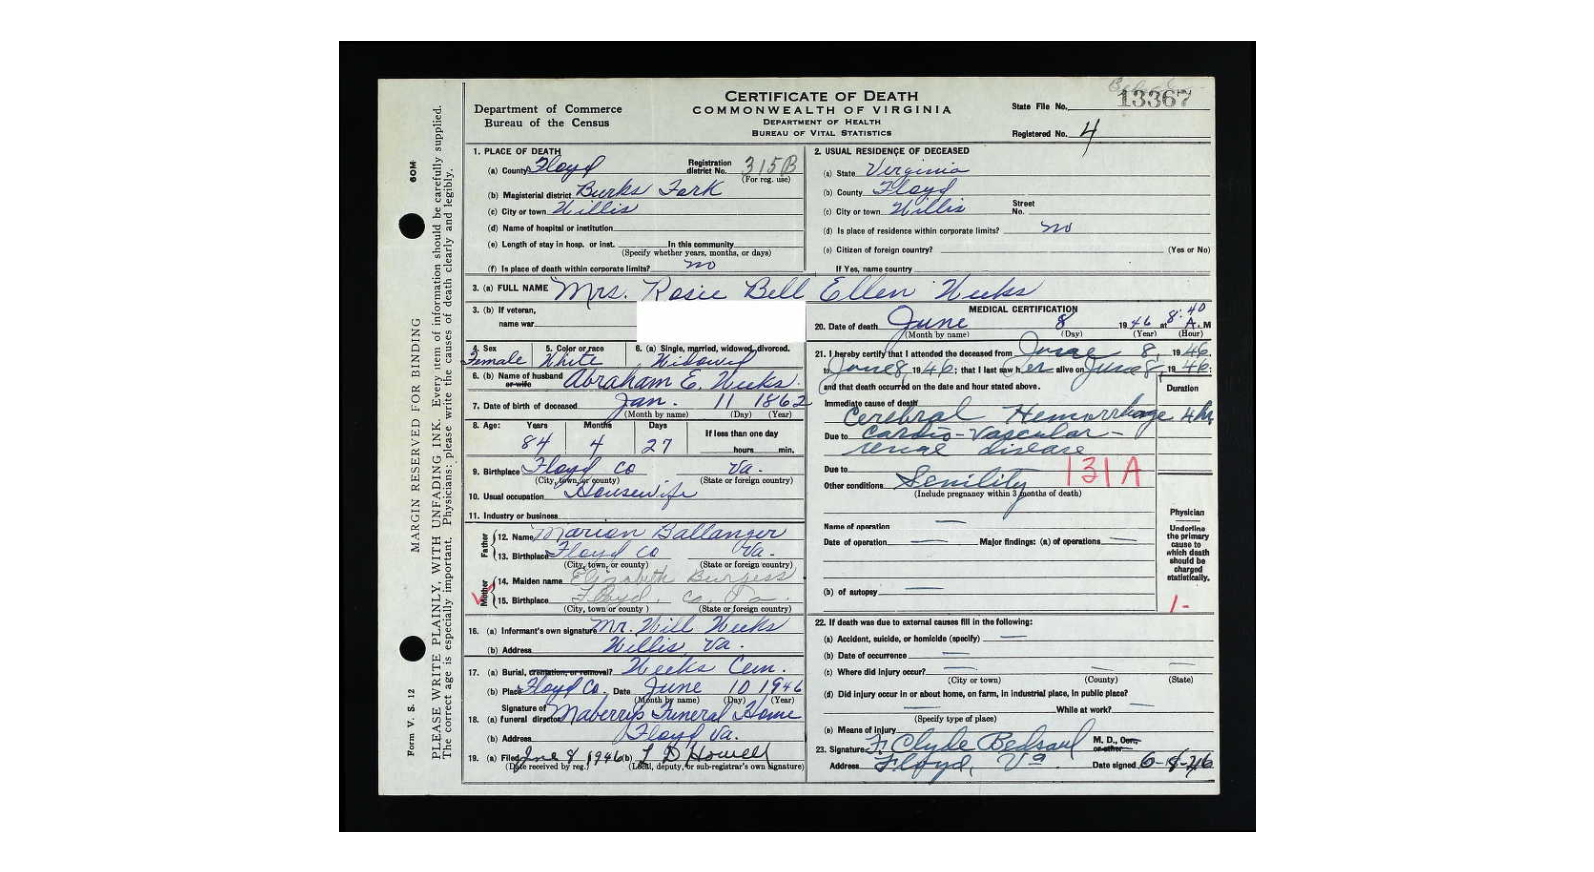 CERTIFICATE OF DEATH
COMMONWEALTH OF VIRGINIA
DEPARTMENT OF HEALTH
BUREAU OF VITAL STATISTICS
Department of Commerce
Bureau of the Census
State File No. 13367
Registered No. 4
1. PLACE OF DEATH
(a) County Floyd Registration district No. 315B
(For reg. use)
(b) Magisterial district Burks Fork
(c) City or town Willis
(d) Name of hospital or institution
(e) Length of stay in hosp. or inst. In this community
(Specify whether years, months, or days)
(f) Is place of death within corporate limits? no
2. USUAL RESIDENCE OF DECEASED
(a) State Virginia
(b) County Floyd
(c) City or town Willis Street No.
(d) Is place of residence within corporate limits? no
(e) Citizen of foreign country? (Yes or No)
If Yes, name country
3. (a) FULL NAME Mrs. Rosie Bell Ellen Weeks
3. (b) If veteran,
name war
4. Sex 5. Color or race 6. (a) Single, married, widowed, divorced.
Female White Widowed
6. (b) Name of husband or wife Abraham E. Weeks
7. Date of birth of deceased Jan. 11 1862
(Month by name) (Day) (Year)
8. Age: Years Months Days If less than one day
84 4 27 hours min.
9. Birthplace Floyd Co Va.
(City, town, or county) (State or foreign country)
10. Usual occupation Housewife
11. Industry or business
Father
12. Name Marion Ballanger
13. Birthplace Floyd Co Va.
(City, town, or county) (State or foreign country)
Mother
14. Maiden name Elizabeth Burgess
15. Birthplace Floyd, Co, Va.
(City, town, or county) (State or foreign country)
16. (a) Informant's own signature Mr. Will Weeks
(b) Address Willis, Va.
17. (a) Burial, cremation, or removal? Weeks Cem.
(b) Place Floyd Co. Date June 10 1946
(Month by name) (Day) (Year)
18. Signature of
(a) funeral director Maberrys Funeral Home
(b) Address Floyd Va.
19. (a) Filed June 8 1946 (b) L D Howell
(Date received by reg.) (Local, deputy, or sub-registrar's own signature)
MEDICAL CERTIFICATION
20. Date of death June 8 1946 at 8:40 A. M
(Month by name) (Day) (Year) (Hour)
21. I hereby certify that I attended the deceased from June 8, 1946
to June 8, 1946; that I last saw her alive on June 8, 1946;
and that death occurred on the date and hour stated above.
Duration
Immediate cause of death
Cerebral Hemorrhage 4 hr
Due to Cardio-Vascular-
renal disease
Due to
131A
Other conditions Senility
(Include pregnancy within 3 months of death)
Name of operation
Date of operation Major findings: (a) of operations
(b) of autopsy
Physician
Underline
the primary
cause to
which death
should be
charged
statistically.
1-
22. If death was due to external causes fill in the following:
(a) Accident, suicide, or homicide (specify)
(b) Date of occurrence
(c) Where did injury occur?
(City or town) (County) (State)
(d) Did injury occur in or about home, on farm, in industrial place, in public place?
While at work?
(Specify type of place)
(e) Means of injury
23. Signature F. Clyde Bedsaul M. D.,
Address Floyd, Va Date signed 6-8-46
Form V. S. 12
MARGIN RESERVED FOR BINDING
60M
PLEASE WRITE PLAINLY, WITH UNFADING INK. Every item of information should be carefully supplied.
The correct age is especially important. Physicians: please write the causes of death clearly and legibly.